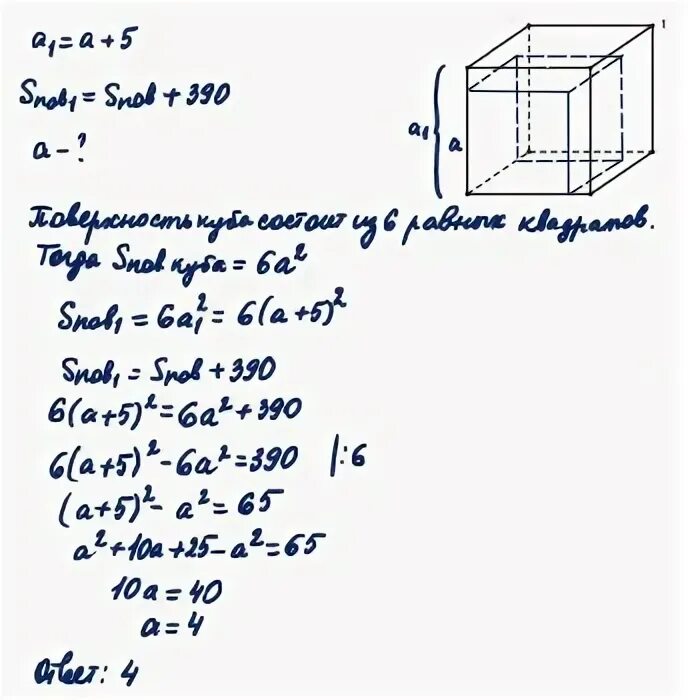 a₁ = a + 5
Sпов₁ = Sпов + 390
a - ?
1
a₁
a
Поверхность куба состоит из 6 равных квадратов.
Тогда Sпов куба = 6a²
Sпов₁ = 6a₁² = 6(a+5)²
Sпов₁ = Sпов + 390
6(a+5)² = 6a² + 390
6(a+5)² - 6a² = 390 |:6
(a+5)² - a² = 65
a² + 10a + 25 - a² = 65
10a = 40
a = 4
Ответ: 4